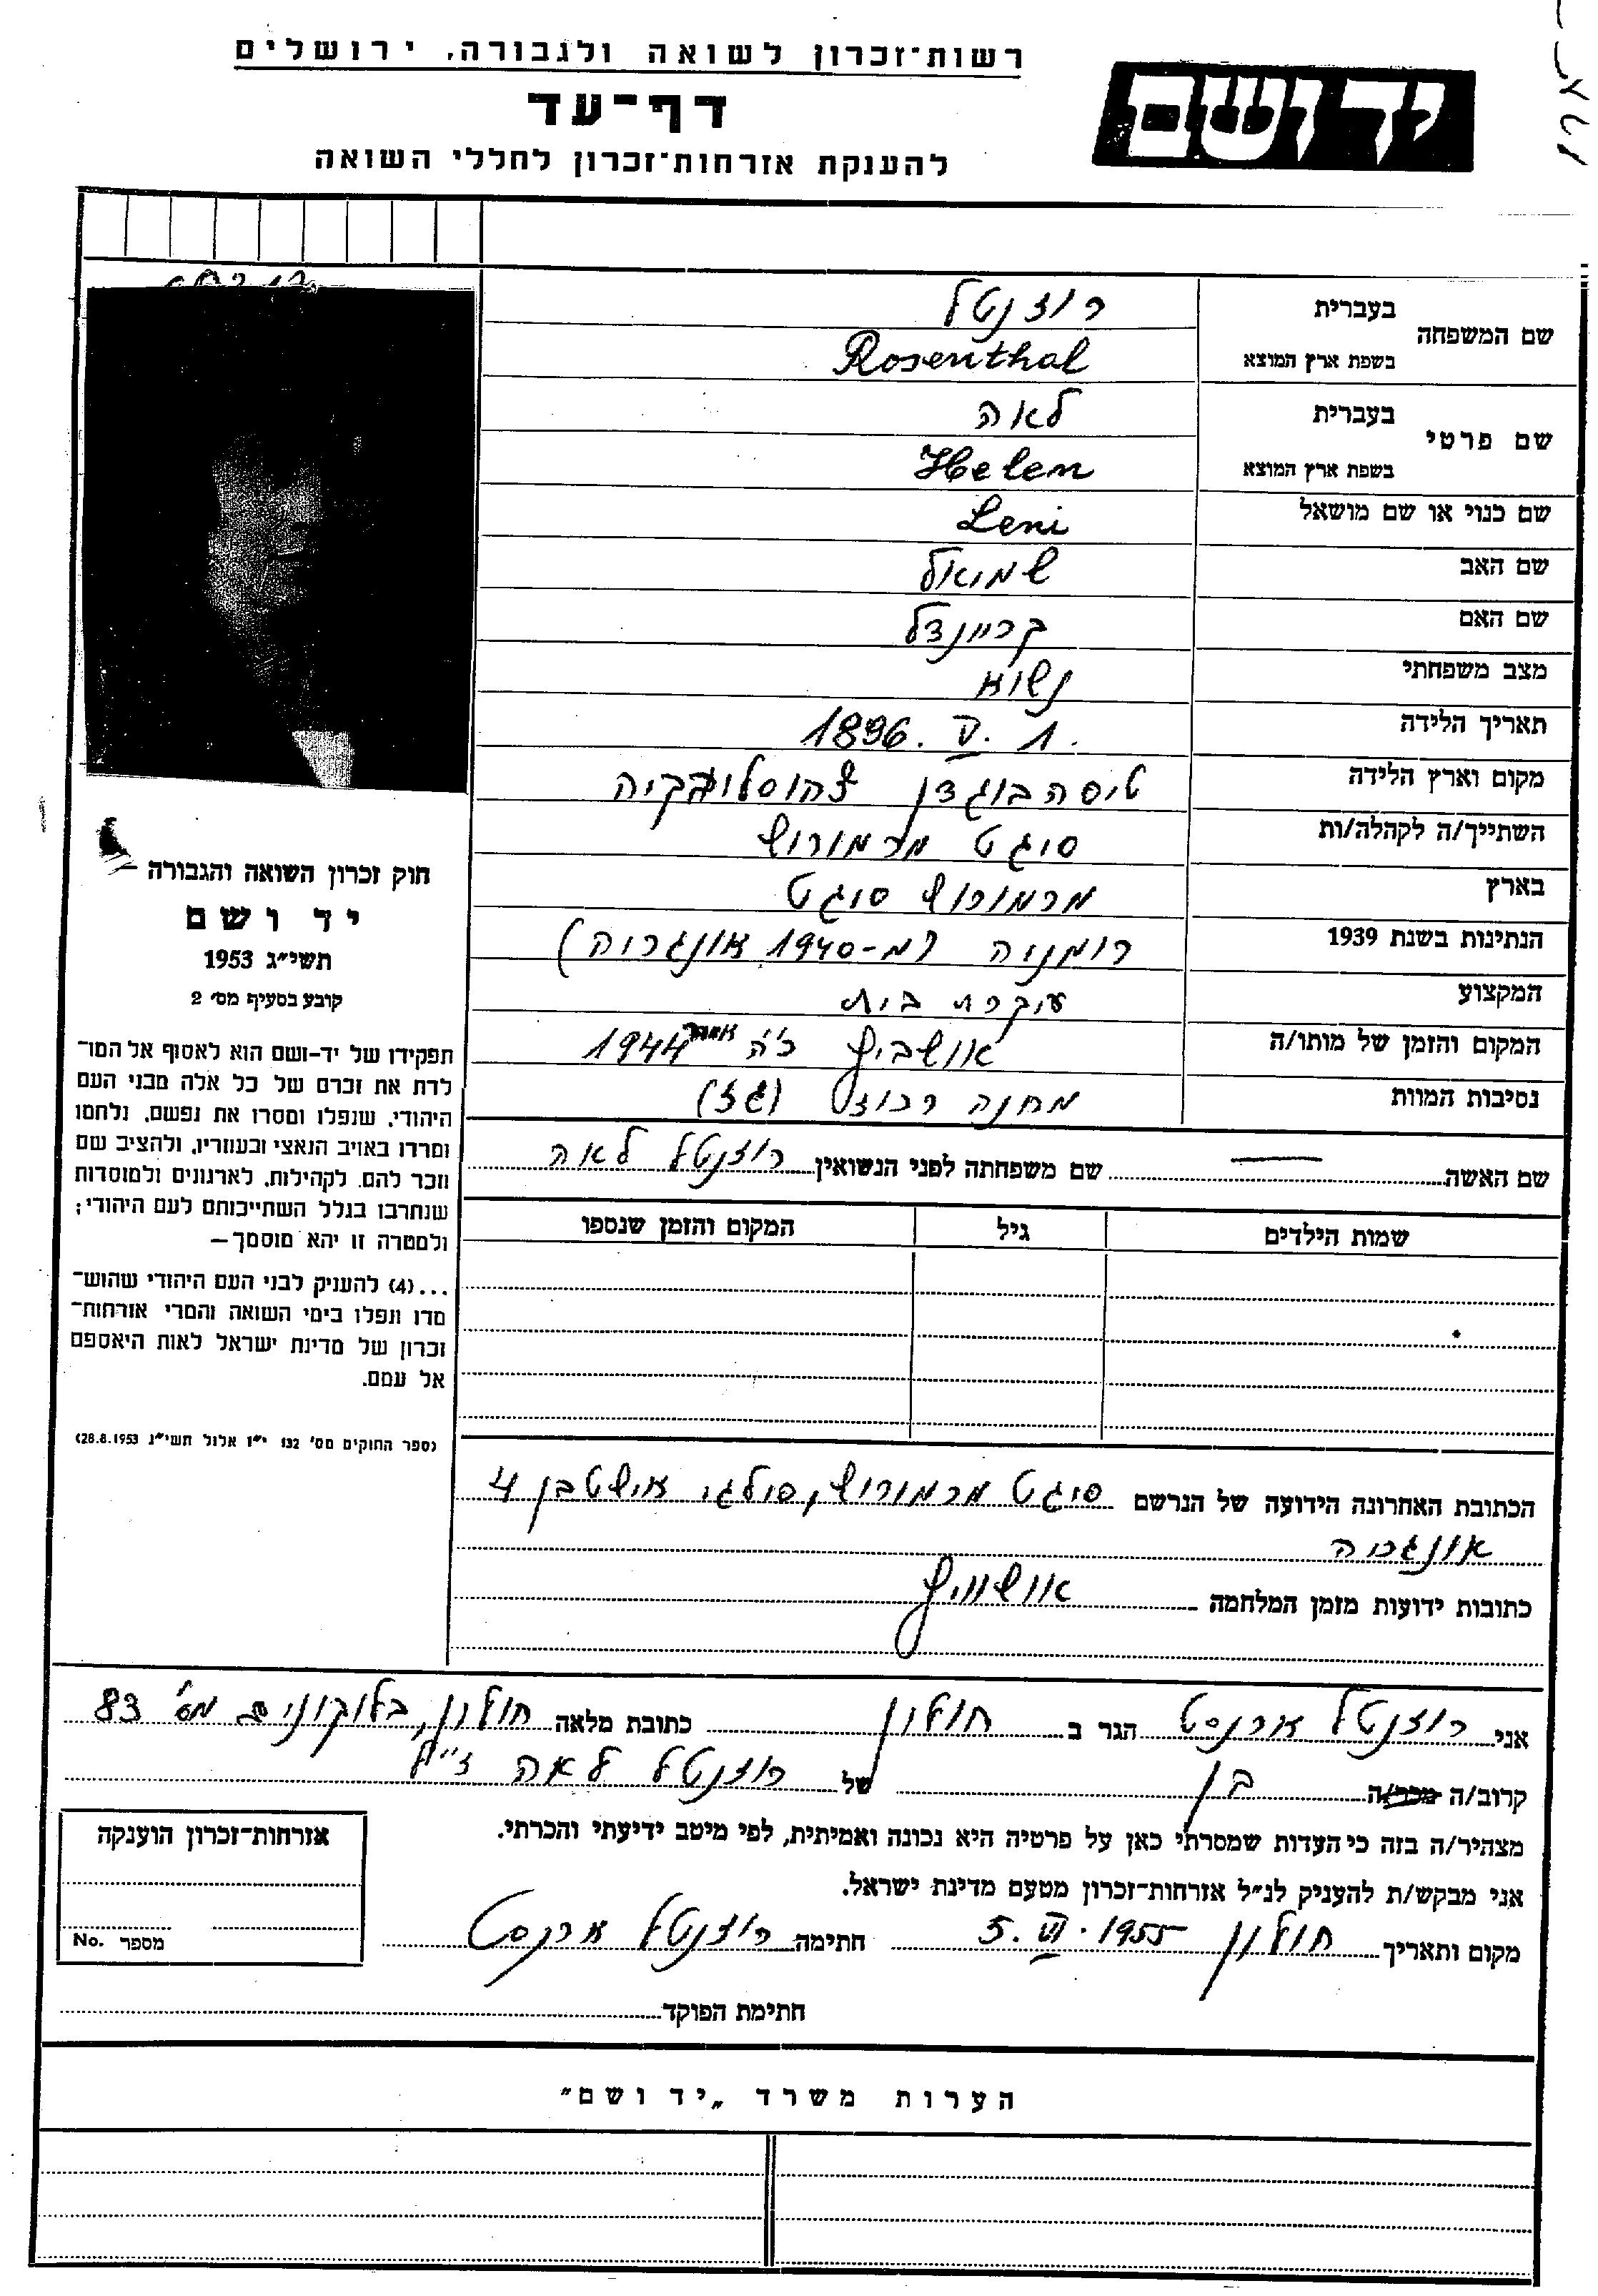 רשות־זכרון לשואה ולגבורה, ירושלים
דף־עד
להענקת אזרחות־זכרון לחללי השואה
יד ושם
שם המשפחה
בעברית רוזנטל
בשפת ארץ המוצא Rosenthal
שם פרטי
בעברית לאה
בשפת ארץ המוצא Helen
שם כנוי או שם מושאל Leni
שם האב שמואל
שם האם בריינדל
מצב משפחתי נשוא
תאריך הלידה 1. V. 1896
מקום וארץ הלידה טיסה בוגדן צ'כוסלובקיה
השתייך/ה לקהלה/ות סיגט מרמורוש
בארץ מרמורוש סיגט
הנתינות בשנת 1939 רומניה (מ-1940 אונגריה)
המקצוע עקרת בית
המקום והזמן של מותו/ה אושביץ כ"ה 1944
נסיבות המוות מחנה רכוז (גז)
שם האשה — שם משפחתה לפני הנשואין רוזנטל לאה
שמות הילדים גיל המקום והזמן שנספו
הכתובת האחרונה הידועה של הנרשם סיגט מרמורוש, סילגי אישטבן 4
אונגריה
כתובות ידועות מזמן המלחמה אושוויץ
חוק זכרון השואה והגבורה —
יד ושם
תשי״ג 1953
קובע בסעיף מס׳ 2
תפקידו של יד-ושם הוא לאסוף אל המו־
לדת את זכרם של כל אלה מבני העם
היהודי, שנפלו ומסרו את נפשם, נלחמו
ומרדו באויב הנאצי ובעוזריו, ולהציב שם
וזכר להם, לקהילות, לארגונים ולמוסדות
שנחרבו בגלל השתייכותם לעם היהודי;
ולמטרה זו יהא מוסמך —
...(4) להעניק לבני העם היהודי שהוש־
מדו ונפלו בימי השואה והמרי אזרחות־
זכרון של מדינת ישראל לאות היאספם
אל עמם.
(ספר החוקים מס׳ 132 י״ז אלול תשי״ג 28.8.1953)
אני רוזנטל ארנסט הגר ב חולון כתובת מלאה חולון, בלוקונים מס' 83
קרוב/ה מכר/ה בן של רוזנטל לאה ז"ל
מצהיר/ה בזה כי העדות שמסרתי כאן על פרטיה היא נכונה ואמיתית, לפי מיטב ידיעתי והכרתי.
אני מבקש/ת להעניק לנ״ל אזרחות־זכרון מטעם מדינת ישראל.
מקום ותאריך חולון 5. VI. 1955 חתימה רוזנטל ארנסט
חתימת הפוקד
אזרחות־זכרון הוענקה
מספר No.
הערות משרד „יד ושם״